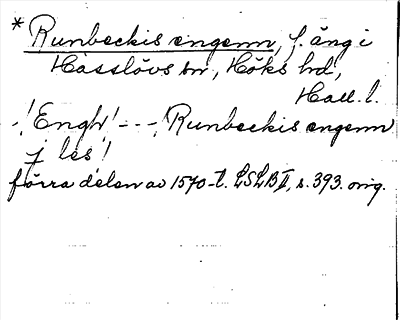 * Runbeckis engenn, f. äng i
Hasslövs sn, Höks hd,
Hall. l.
-!Engh! - - -, Runbeckis engenn
j les!
förra delen av 1570-t. LSLB II, s. 393. orig.